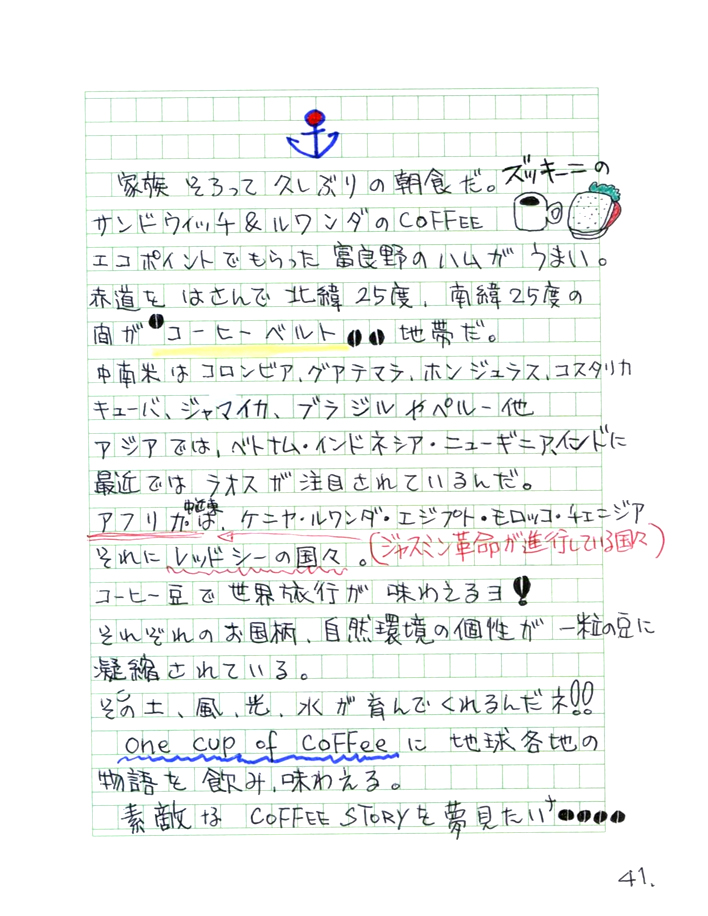 家族そろって久しぶりの朝食だ。ズッキーニの
サンドウィッチ&ルワンダのCOFFEE
エコポイントでもらった富良野のハムがうまい。
赤道をはさんで北緯25度、南緯25度の
間がコーヒーベルト地帯だ。
中南米はコロンビア、グアテマラ、ホンジュラス、コスタリカ
キューバ、ジャマイカ、ブラジルやペルー他
アジアでは、ベトナム・インドネシア・ニューギニア、インドに
最近ではラオスが注目されているんだ。
中近東
アフリカは、ケニヤ・ルワンダ・エジプト・モロッコ・チェニジア
それにレッドシーの国々。(ジャスミン革命が進行している国々)
コーヒー豆で世界旅行が味わえるヨ!
それぞれのお国柄、自然環境の個性が一粒の豆に
凝縮されている。
その土、風、光、水が育んでくれるんだネ!!
one cup of CoFFeeに地球各地の
物語を飲み、味わえる。
素敵なCOFFEE STORYを夢見たいナ
41.